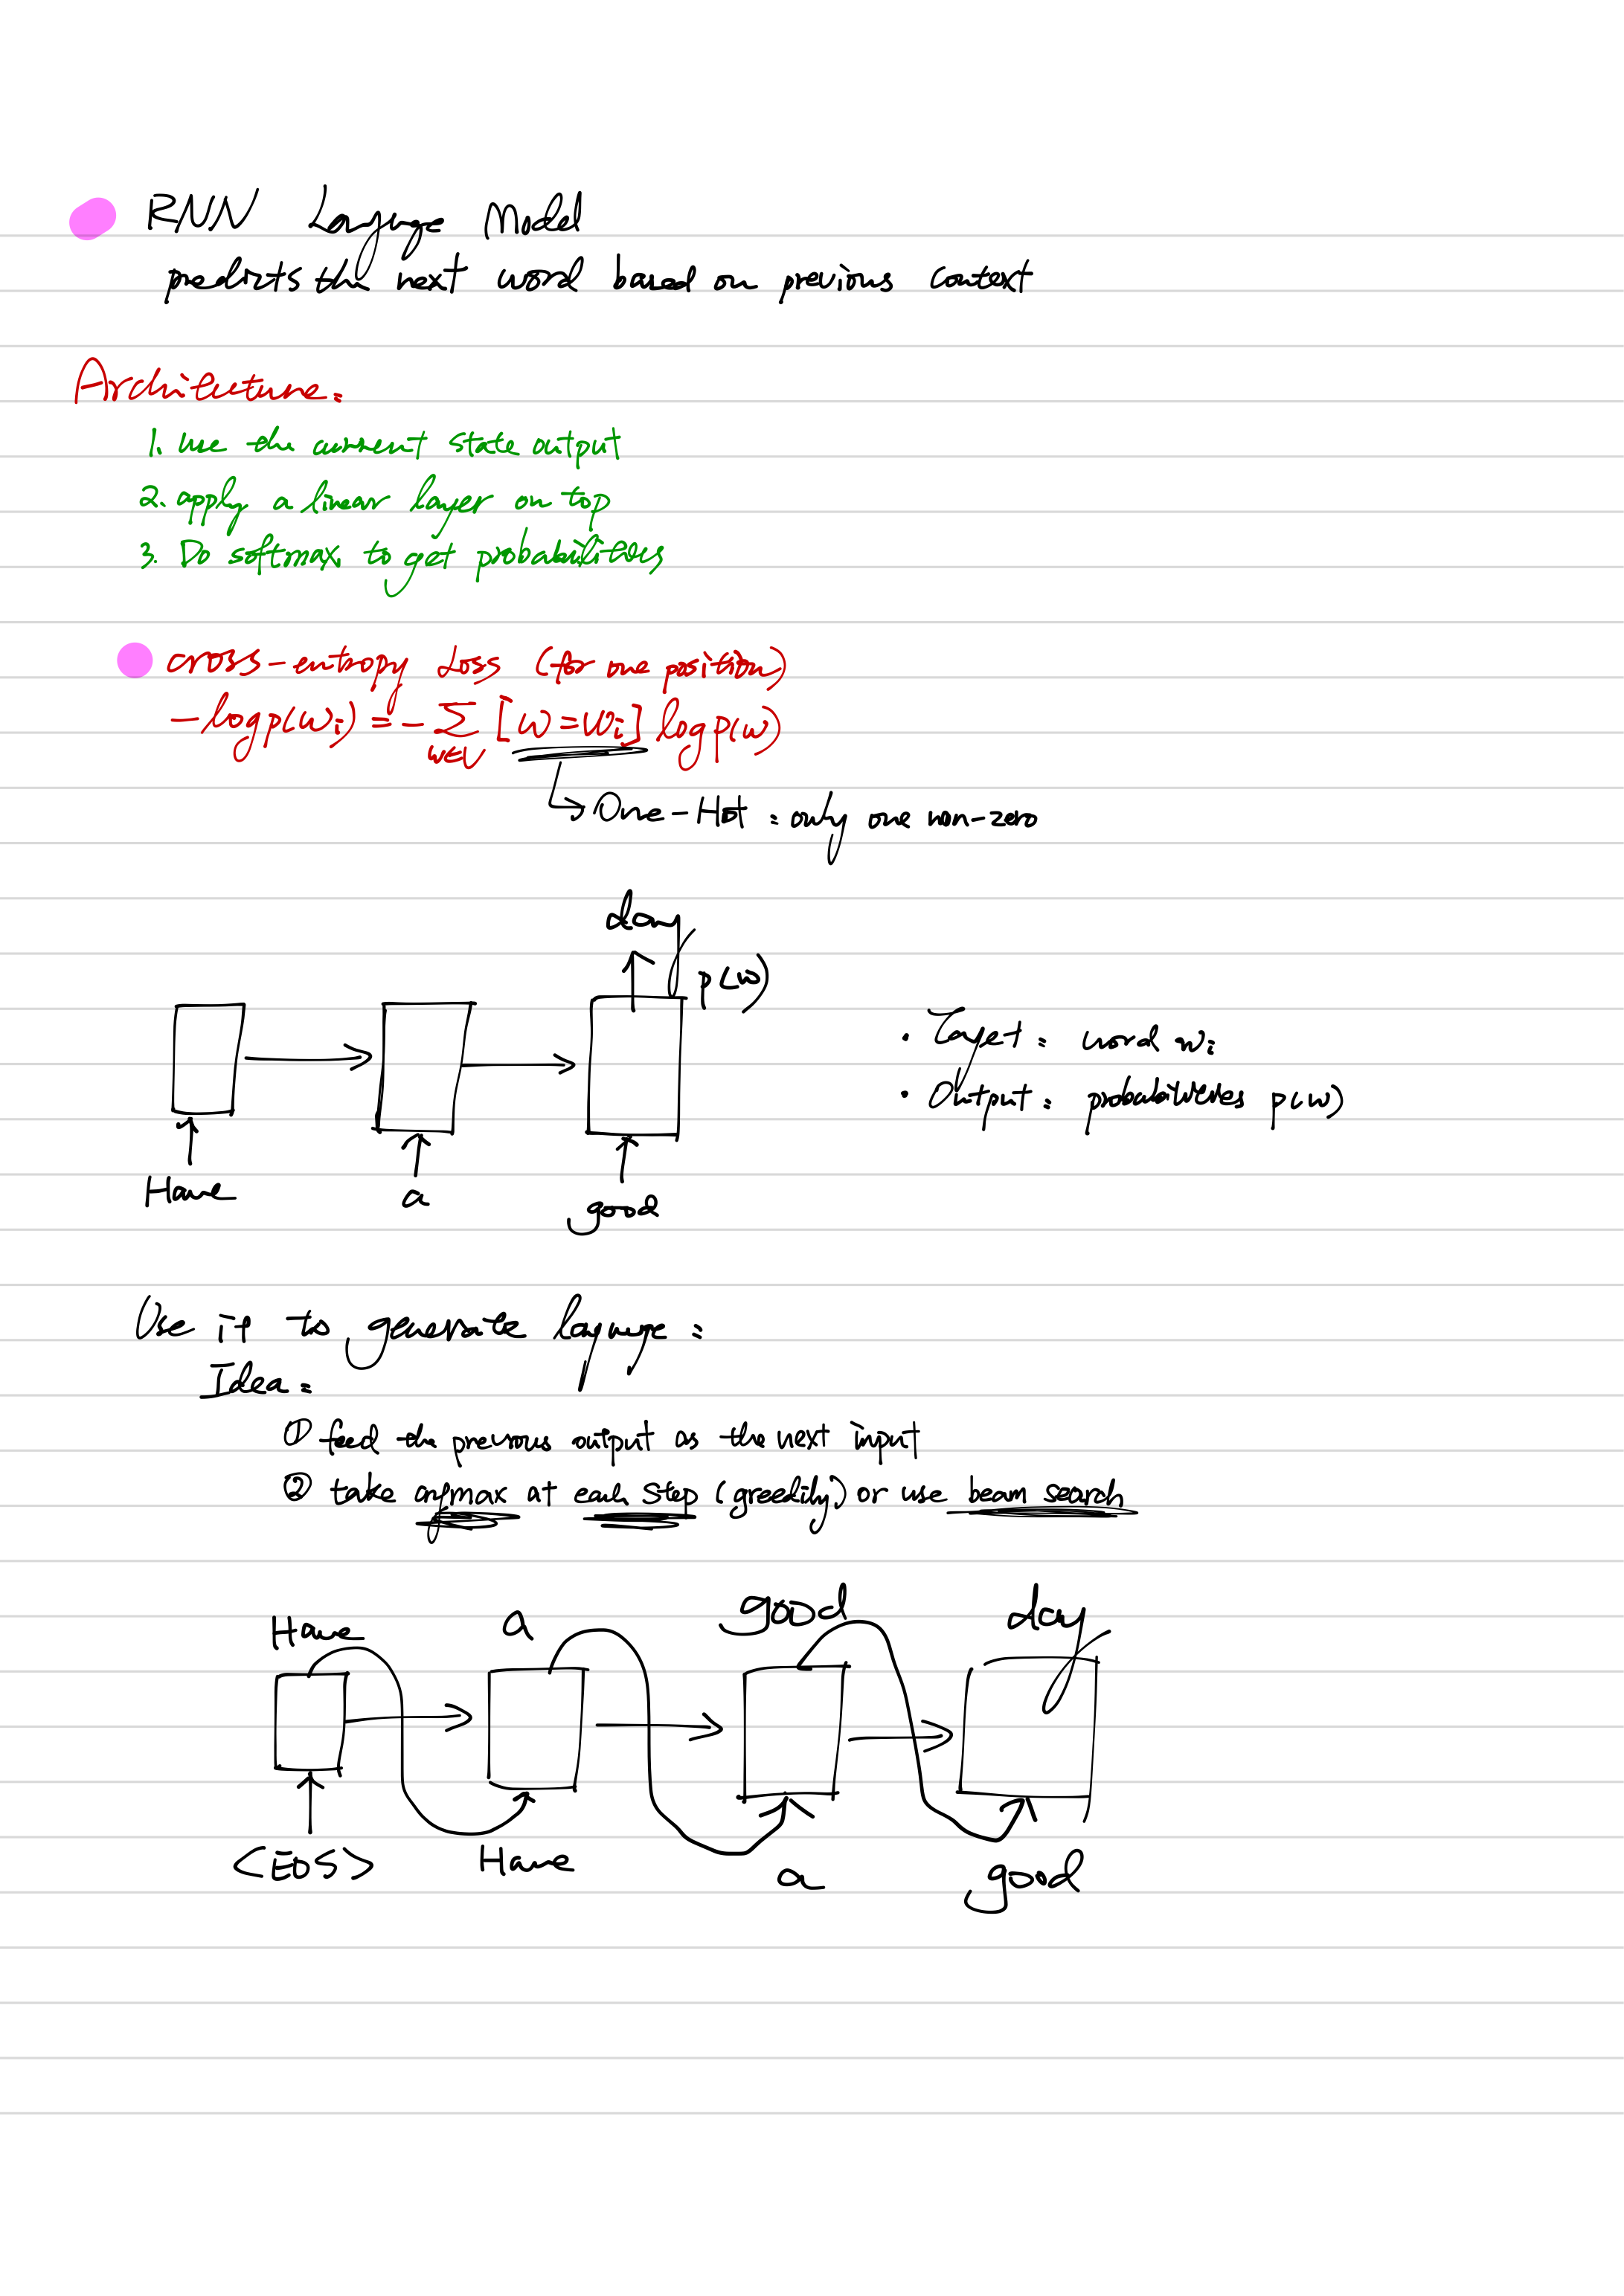 RNN Language Model
predicts the next word based on previous context
Architecture:
1. use the current state output
2. apply a linear layer on top
3. Do softmax to get probabilities
cross-entropy Loss (for one position)
-log p(wᵢ) = -∑ [w=wᵢ] log p(w)
w∈V
One-Hot : only one non-zero
day
p(w)
• Target : word wᵢ
• Output : probabilities p(w)
Have a good
Use it to generate language :
Idea :
① feed the previous output as the next input
② take argmax at each step (greedily) or use beam search
Have a good day
<EOS> Have a good